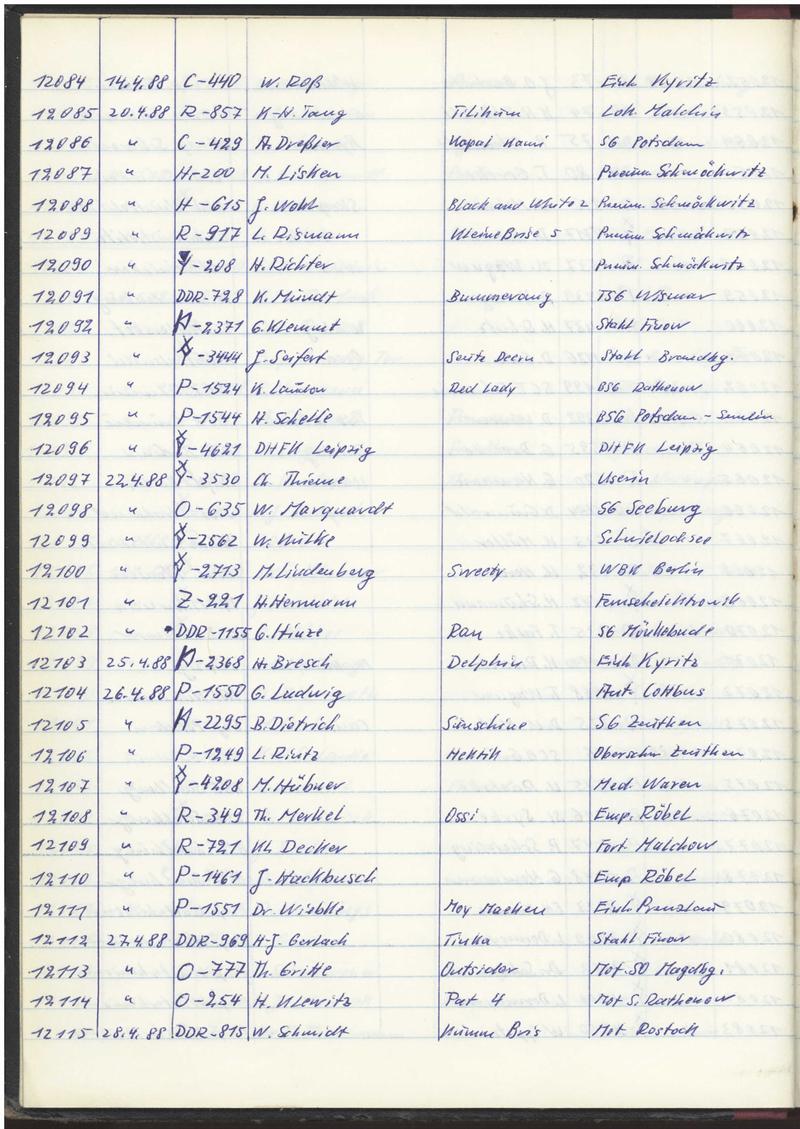 12084 14.4.88 C-440 W. Roß Einh. Kyritz
12085 20.4.88 R-857 K-H. Tang Tilikum Lok. Malchin
12086 " C-429 A. Dreßler Kapal Kami SG Potsdam
12087 " H-200 M. Lisken Pneum. Schmöckwitz
12088 " H-615 J. Wohl Black and White 2 Pneum. Schmöckwitz
12089 " R-917 L. Rismann Kleine Brise 5 Pneum. Schmöckwitz
12090 " Y-208 H. Richter Pneum. Schmöckwitz
12091 " DDR-728 K. Mündt Bummerang TSG Wismar
12092 " -2371 G. Klemmt Stahl Finow
12093 " -3444 J. Seifert Seute Deern Stahl Brandbg.
12094 " P-1524 K. Red Lady BSG Rathenow
12095 " P-1544 H. Schelle BSG Potsdam-
12096 " -4621 DHFK Leipzig DHFK Leipzig
12097 22.4.88 -3530 Ch. Thieme Userin
12098 " O-635 W. Marquardt SG Seeburg
12099 " -2562 W. Schwielochsee
12100 " -2713 M. Lindenberg Sweety WBK Berlin
12101 " Z-221 H. Herrmann Fernsehelektronik
12102 " DDR-1155 G. Hinze Ran SG Mönkebude
12103 25.4.88 -2368 H. Bresch Delphin Einh. Kyritz
12104 26.4.88 P-1550 G. Ludwig Aut. Cottbus
12105 " -2295 B. Dietrich Sunschine SG Zeuthen
12106 " P-1249 L. Rintz Hektik Oberschw Zeuthen
12107 " -4208 M. Hübner Med. Waren
12108 " R-349 Th. Merkel Ossi Emp. Röbel
12109 " R-721 Kl. Decker Fort. Malchow
12110 " P-1461 J. Hackbusch Emp Röbel
12111 " P-1551 Dr. Wiebke Moy Macken Einh Prenzlau
12112 27.4.88 DDR-969 H-J. Gerlach Tinka Stahl Finow
12113 " O-777 Th. Gritte Outsider Mot. SO Magdbg.
12114 " O-254 H. Ulewitz Pat 4 Mot S. Rathenow
12115 28.4.88 DDR-815 W. Schmidt Mot Rostock